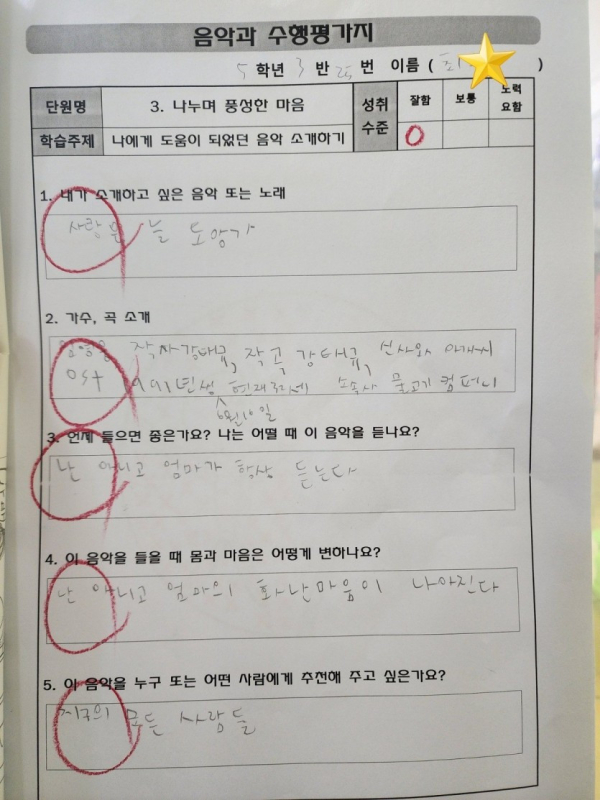 음악과 수행평가지
5 학년 3 반 25 번 이름 ( 최 )
단원명 3. 나누며 풍성한 마음 성취수준 잘함 보통 노력요함
학습주제 나에게 도움이 되었던 음악 소개하기 O
1. 내가 소개하고 싶은 음악 또는 노래
사랑은 늘 도망가
2. 가수, 곡 소개
임영웅 작사강태규, 작곡 강태규, 신사와 아가씨
OST 1991년생 현재 소속사 물고기 컴퍼니
6월 16일
3. 언제 들으면 좋은가요? 나는 어떨 때 이 음악을 듣나요?
난 아니고 엄마가 항상 듣는다
4. 이 음악을 들을 때 몸과 마음은 어떻게 변하나요?
난 아니고 엄마의 화난마음이 나아진다
5. 이 음악을 누구 또는 어떤 사람에게 추천해 주고 싶은가요?
지구의 모든 사람들